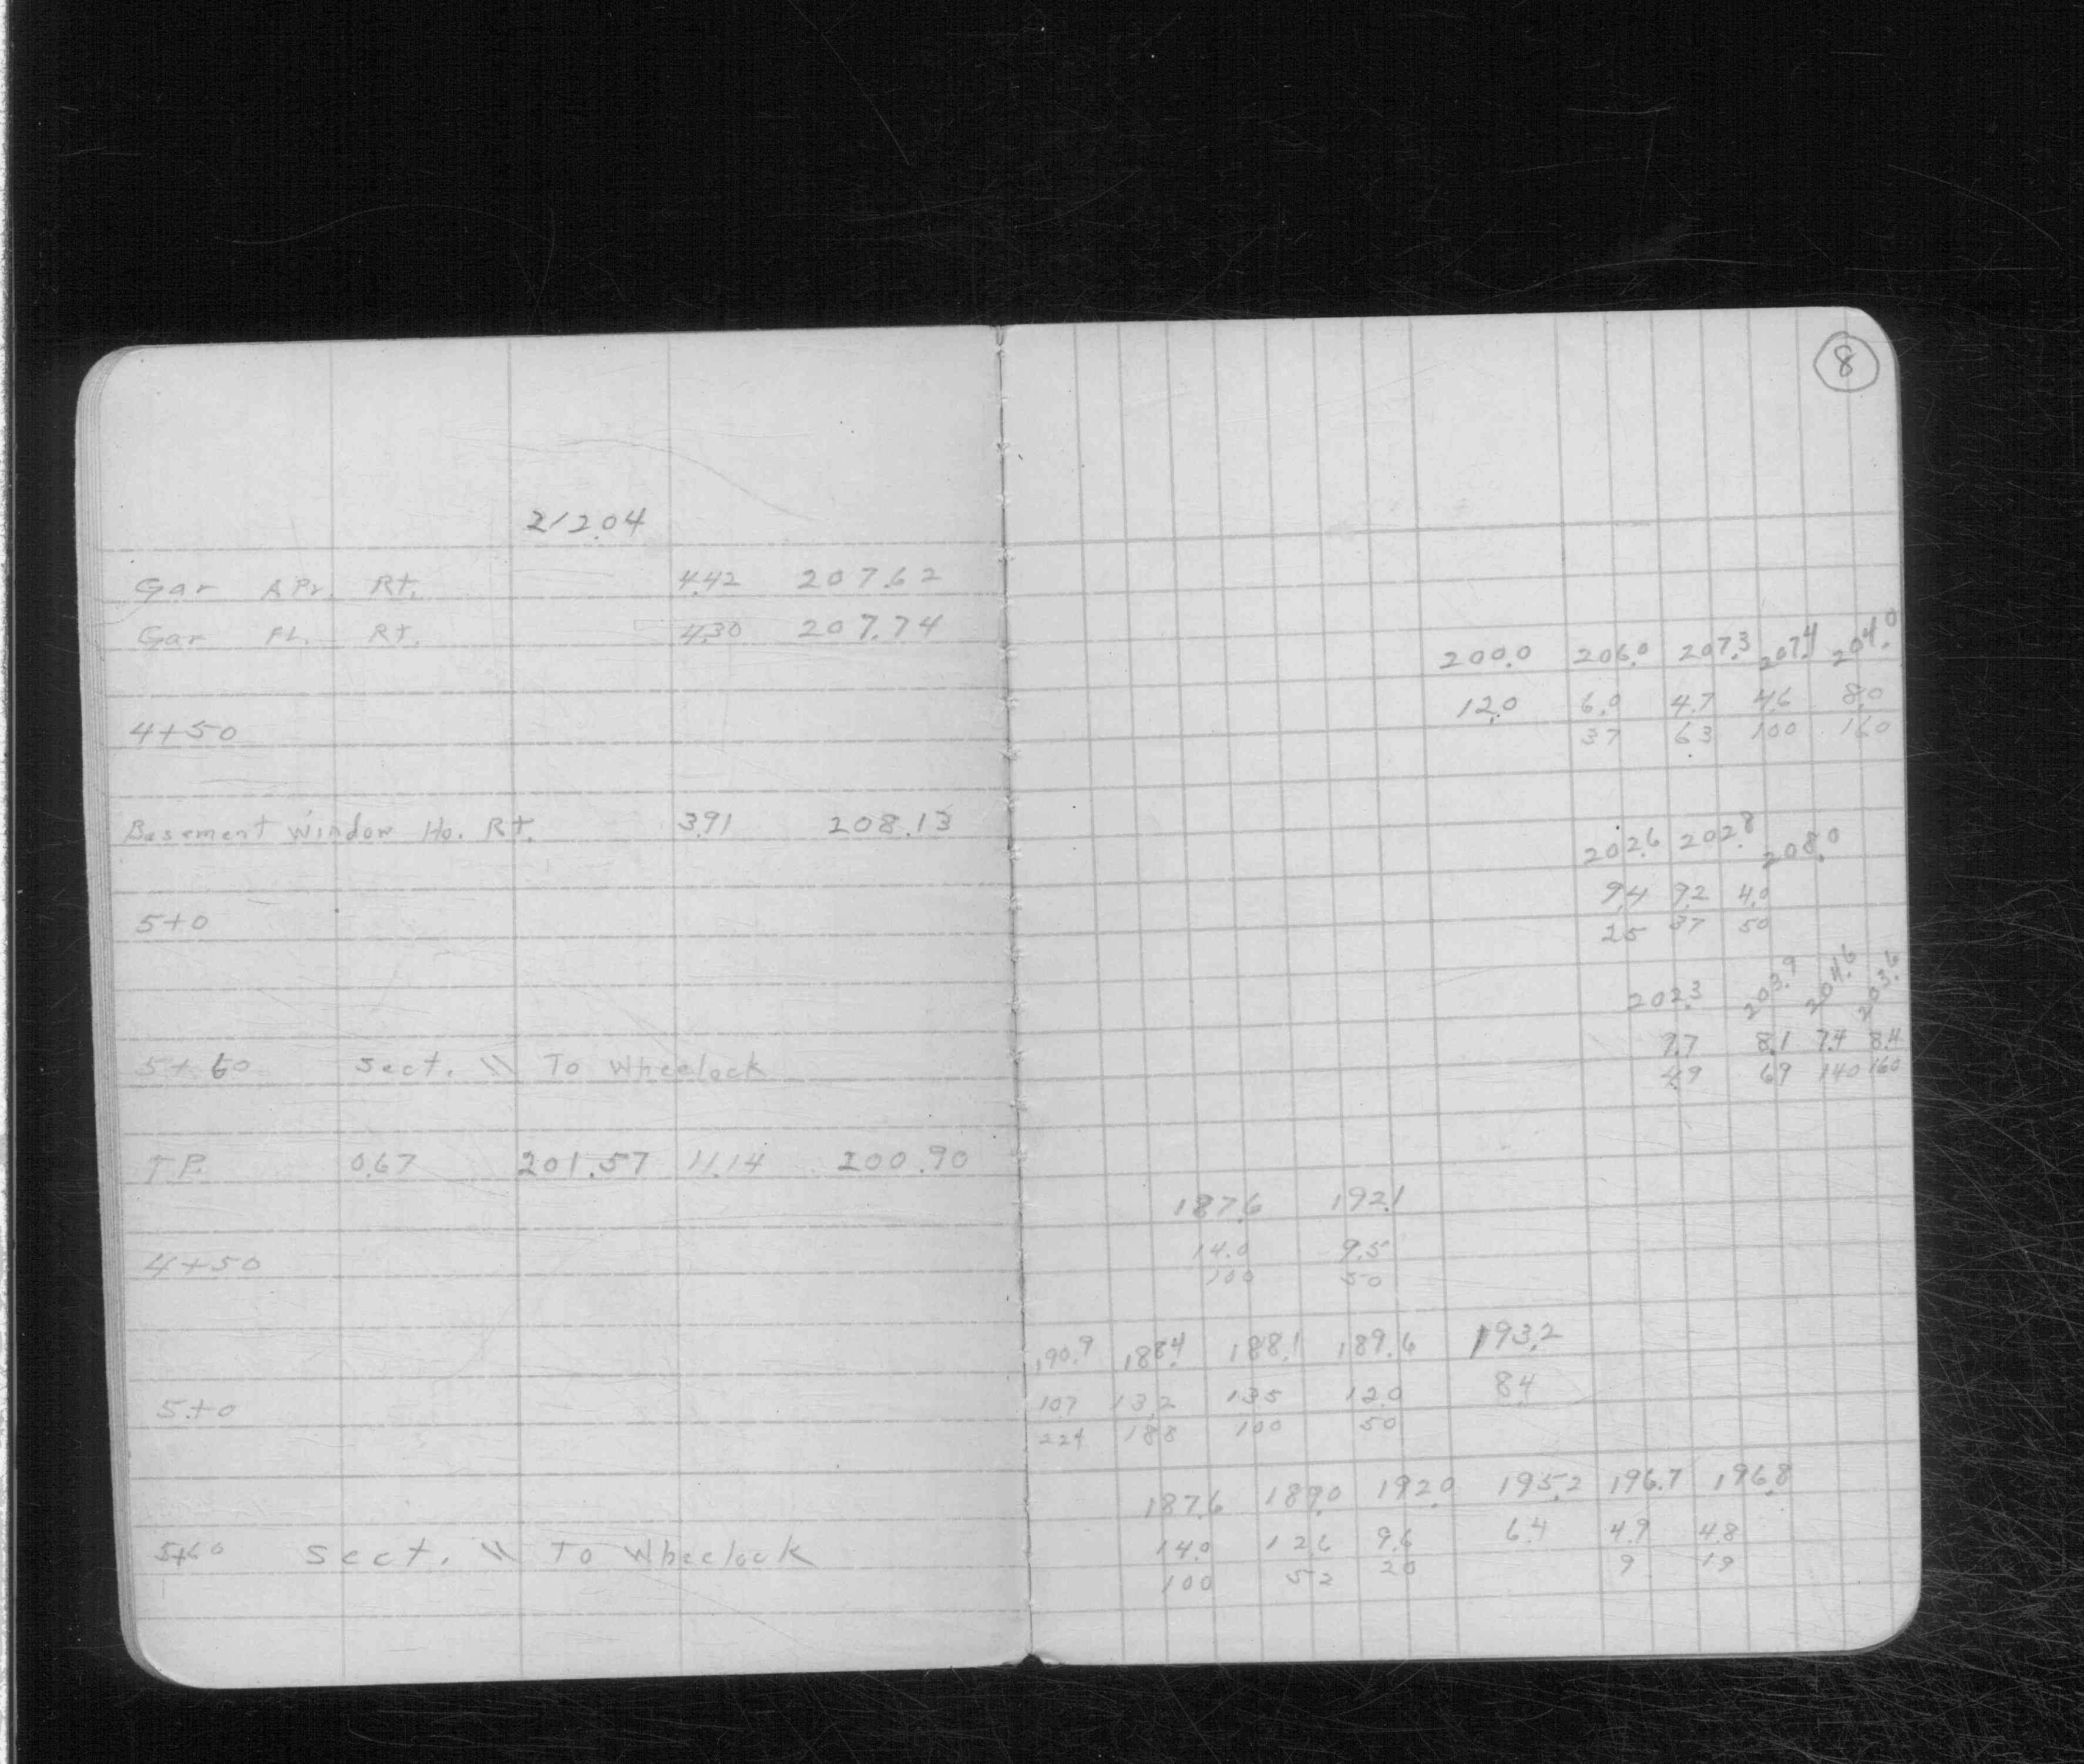 8
212.04
Gar APr. Rt. 4.42 207.62
Gar FL. Rt. 4.30 207.74
200.0 206.0 207.3 207.4 204.0
12.0 6.0 4.7 4.6 8.0
4+50 37 63 100 160
Basement Window Ho. Rt. 3.91 208.13
202.6 202.8 208.0
9.4 9.2 4.0
5+0 25 37 50
202.3 203.9 204.6 203.6
9.7 8.1 7.4 8.4
5+60 Sect. \\ To Wheelock 49 69 140 160
T.P. 0.67 201.57 11.14 200.90
187.6 192.1
14.0 9.5
4+50 100 50
190.9 188.4 188.1 189.6 193.2
10.7 13.2 13.5 12.0 8.4
5+0 224 188 100 50
187.6 189.0 192.0 195.2 196.7 196.8
14.0 12.6 9.6 6.4 4.9 4.8
5+60 Sect. \\ To Wheelock 100 52 20 9 19